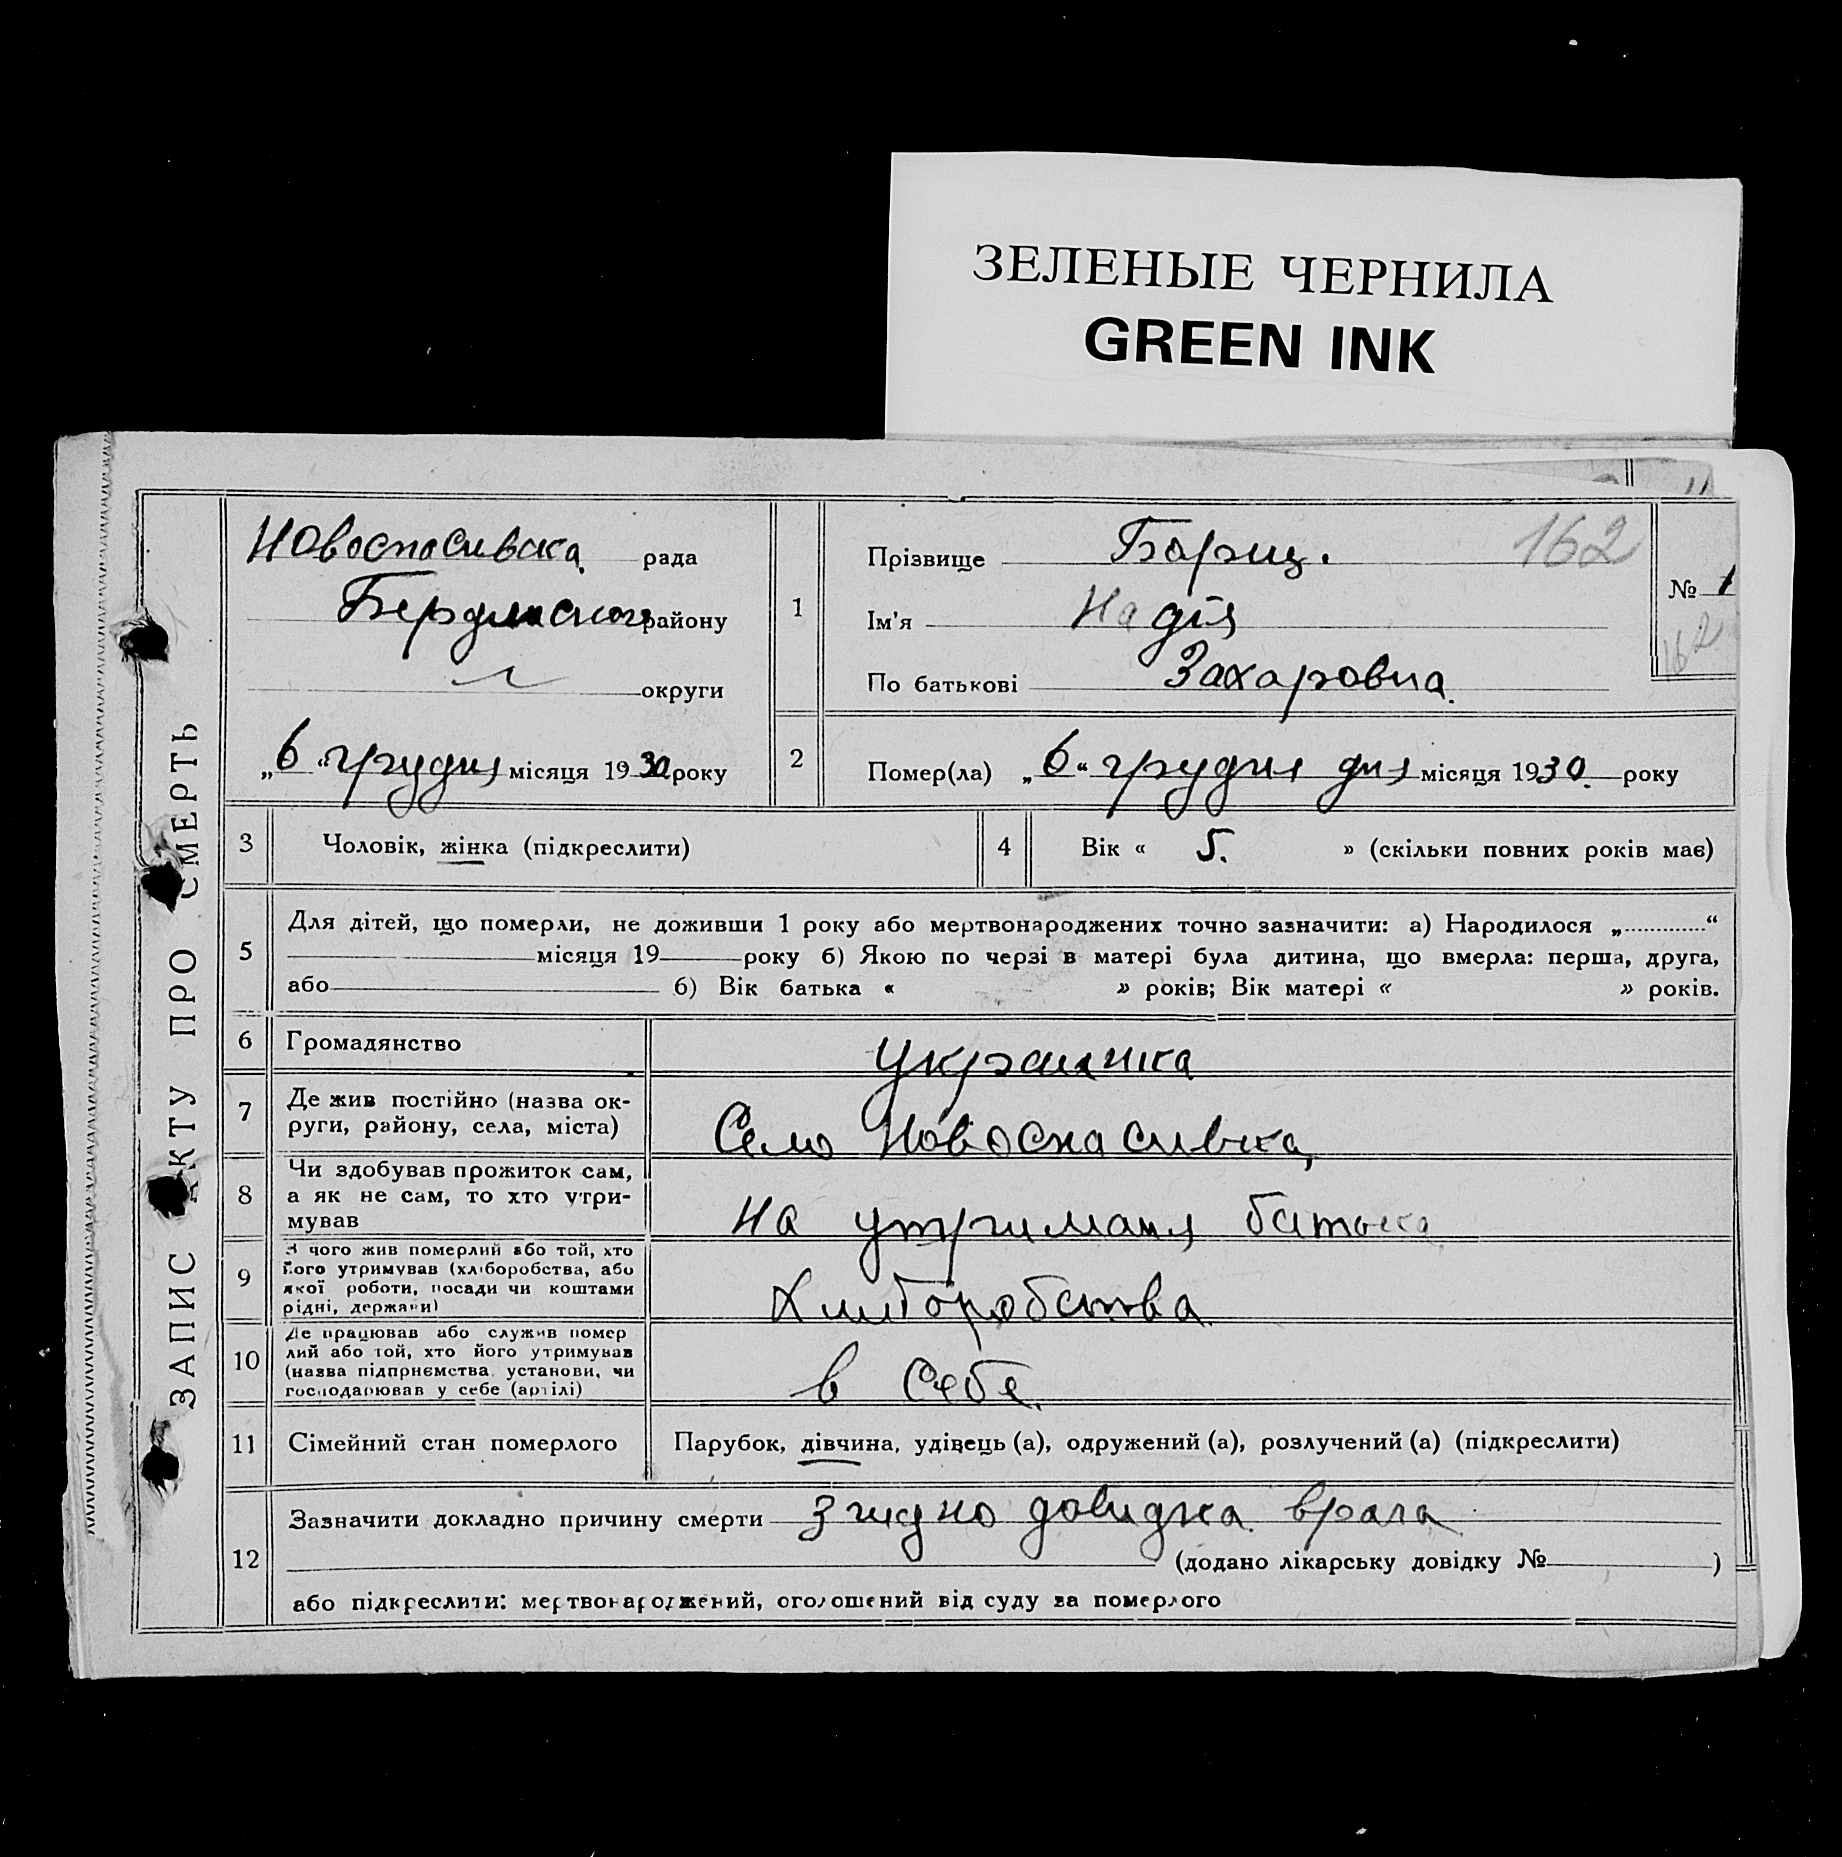 ЗЕЛЕНЫЕ ЧЕРНИЛА
GREEN INK
ЗАПИС АКТУ ПРО СМЕРТЬ
Новоспасивска рада
Бердянского району
округи
„6“ грудня місяця 1930 року
1
Прізвище Борищ.
162
Ім'я Надія
По батькові Захаровна.
№ 1
162
2
Помер(ла) „6“ грудня дня місяця 1930. року
3 Чоловік, жінка (підкреслити)
4 Вік « 5. » (скільки повних років має)
5
Для дітей, що померли, не доживши 1 року або мертвонароджених точно зазначити: а) Народилося „ “
місяця 19 року б) Якою по черзі в матері була дитина, що вмерла: перша, друга,
або б) Вік батька « » років; Вік матері « » років.
6 Громадянство украинка
7
Де жив постійно (назва ок-
руги, району, села, міста)
Село Новоспасивка,
8
Чи здобував прожиток сам,
а як не сам, то хто утри-
мував
На утриманя батька
9
З чого жив померлий або той, хто
його утримував (хліборобства, або
якої роботи, посади чи коштами
рідні, держави)
Хлиборобства.
10
Де працював або служив помер
лий або той, хто його утримував
(назва підприємства, установи, чи
господарював у себе (артілі)
в себе.
11 Сімейний стан померлого Парубок, дівчина, удівець (а), одружений (а), розлучений (а) (підкреслити)
12
Зазначити докладно причину смерти згидно довидка врача
(додано лікарську довідку № )
або підкреслити: мертвонароджений, оголошений від суду за померлого